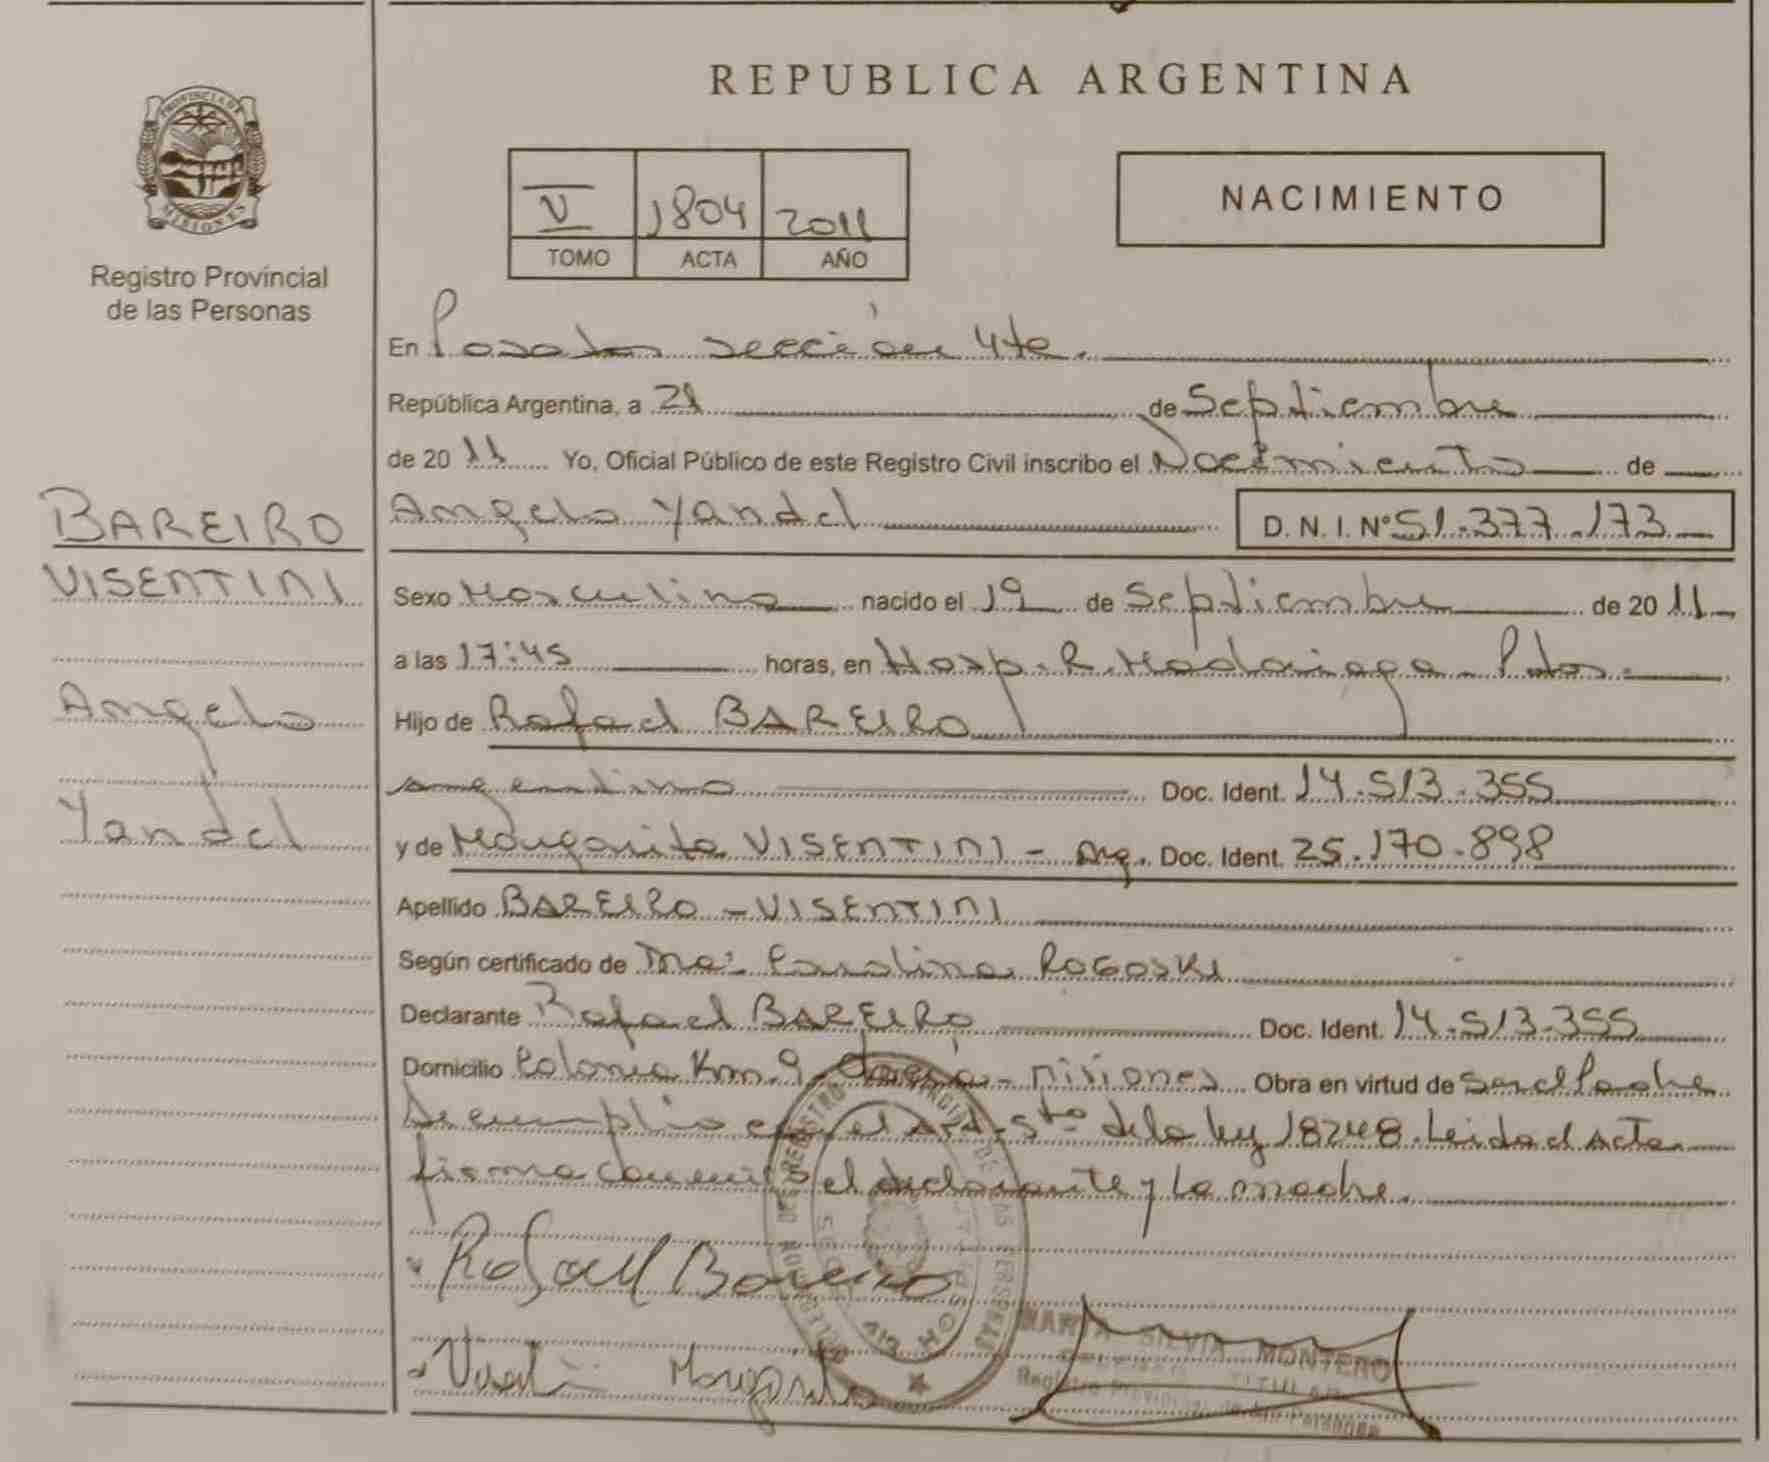 REPUBLICA ARGENTINA
PROVINCIA DE
MISIONES
Registro Provincial
de las Personas
V 1804 2011
TOMO ACTA AÑO
NACIMIENTO
En Posadas sección 4ta.
República Argentina, a 21 de Septiembre
de 20 11 Yo, Oficial Público de este Registro Civil inscribo el Nacimiento de
Angelo Yandel D. N. I. Nº 51.377.173
BAREIRO
VISENTINI
Angelo
Yandel
Sexo Masculino nacido el 19 de Septiembre de 20 11
a las 17:45 horas, en Hosp. R. Madariaga - Pdas.
Hijo de Rafael BAREIRO
argentino Doc. Ident. 14.513.355
y de Margarita VISENTINI - Arg. Doc. Ident. 25.170.898
Apellido BAREIRO - VISENTINI
Según certificado de Ma: Carolina ROGOSKI
Declarante Rafael BAREIRO Doc. Ident. 14.513.355
Domicilio Colonia Km. 9 - Misiones Obra en virtud de ser el Padre
Se cumplio con el Art. 5to de la ley 18248. Leida el Acta
firma conmigo el declarante y la madre.
Rafael Bareiro
Visentini Margarita
MARTA SILVIA MONTERO
TITULAR
Registro Provincial de las Personas